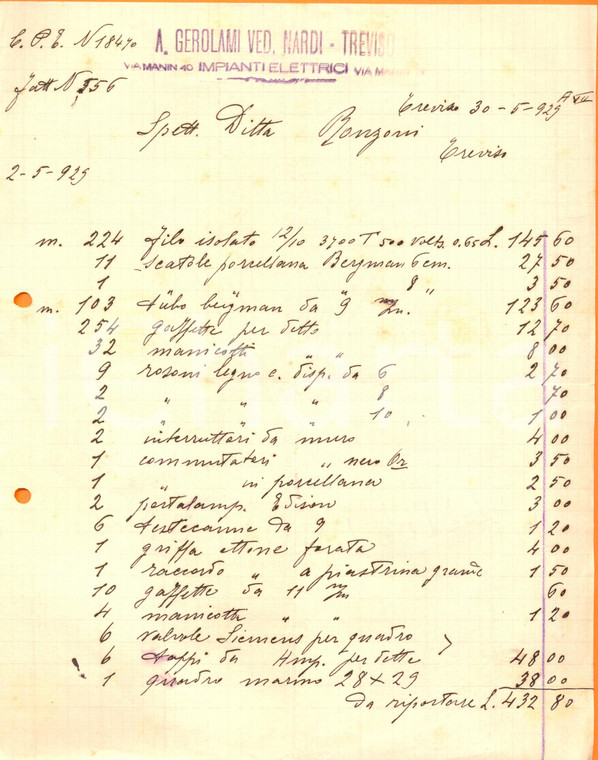 C.P.E. N 18470
A. GEROLAMI VED. NARDI - TREVISO
VIA MANIN 40 IMPIANTI ELETTRICI VIA MANIN
Fatt N 556
Treviso 30-5-929 A VII
Spett. Ditta Ronzoni
Treviso
2-5-929
m. 224 filo isolato 12/10 3700 T 500 Volts 0.65 L. 145 60
11 scatole porcellana Bergman 6 cm. 27 50
1 " " 8 " 3 50
m. 103 tubo bergman da 9 m/m. 123 60
254 gaffette per dette 12 70
32 manicotti " " 8 00
9 rosoni legno c. disp. da 6 2 70
2 " " " 8 70
2 10 . 1 00
2 interruttori da muro 4 00
1 commutatori " nero 3 50
1 " in porcellana 2 50
2 portalamp. Edison 3 00
6 testecanne da 9 1 20
1 griffa ottone forata 4 00
1 raccordo " a piastrina grande 1 50
10 gaffette da 11 m/m 60
4 manicotti " " 1 20
6 valvole Siemens per quadro
6 tappi da Amp. per dette 48 00
1 quadro marmo 28 x 29 38 00
Da riportare L. 432 80